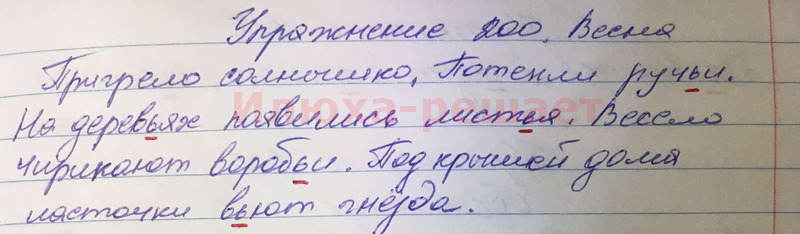 Упражнение 200. Весна
Пригрело солнышко. Потекли ручьи.
Илюха-решает
На деревьях появились листья. Весело
чирикают воробьи. Под крышей дома
ласточки вьют гнёзда.